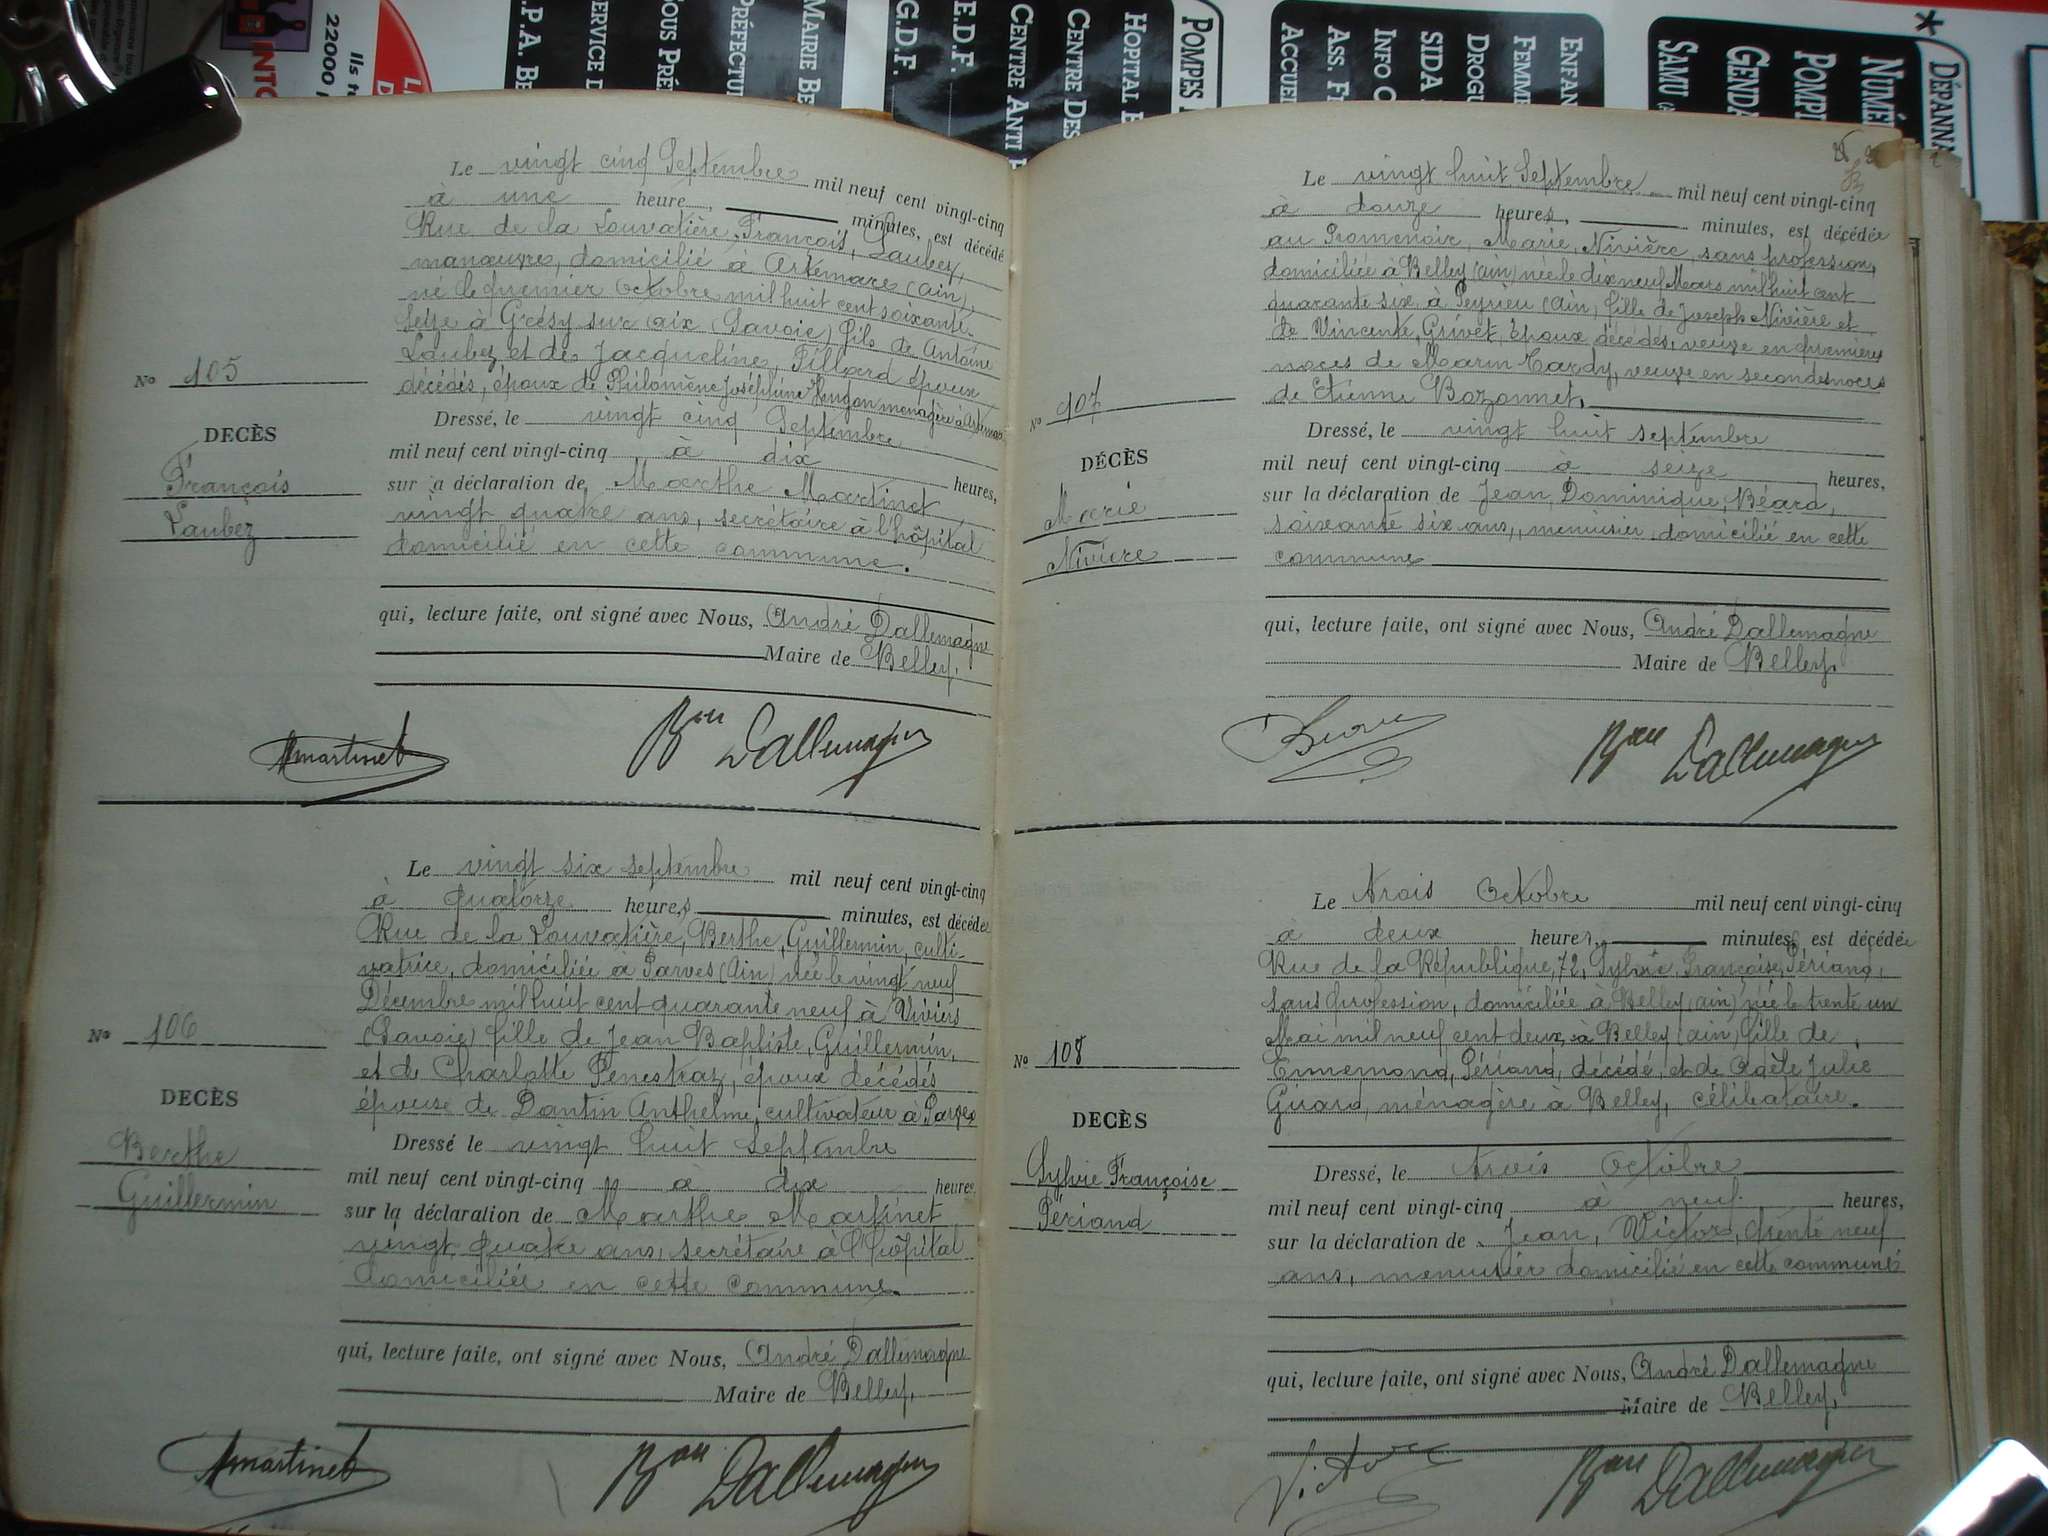 Le vingt cinq Septembre mil neuf cent vingt-cinq
à une heure, minutes, est décédé
Rue de la Louvatière, François, Laubez,
manœuvre, domicilié à Artemare (ain)
né le premier Octobre mil huit cent soixante
seize à Grésy sur aix (Savoie) fils de Antoine
Laubez et de Jacqueline, Fillard époux
décédés, époux de Philomène Joséphine ménagère à
No 105
DECÈS
François
Laubez
Dressé, le vingt cinq Septembre
mil neuf cent vingt-cinq à dix heures,
sur a déclaration de Marthe Martinet
vingt quatre ans, secrétaire à l'hôpital
domicilié en cette commune.
qui, lecture faite, ont signé avec Nous, André Dallemagne
Maire de Belley,
Martinet Bon Dallemagne
Le vingt six septembre mil neuf cent vingt-cinq
à quatorze heures minutes, est décédée
Rue de la Louvatière, Berthe, Guillermin, culti-
vatrice, domiciliée à Parves (Ain) née le vingt neuf
Décembre mil huit cent quarante neuf à Viviers
(Savoie) fille de Jean Baptiste, Guillermin,
et de Charlotte époux décédés
épouse de Dantin Anthelme, cultivateur à Parves
No 106
DECÈS
Berthe
Guillermin
Dressé le vingt huit Septembre
mil neuf cent vingt-cinq à dix heures
sur la déclaration de Marthe Martinet
vingt quatre ans, secrétaire à l'hôpital
domiciliée en cette commune.
qui, lecture faite, ont signé avec Nous, André Dallemagne
Maire de Belley,
Martinet Bon Dallemagne
Le vingt huit Septembre mil neuf cent vingt-cinq
à douze heures, minutes, est décédée
au Promenoir, Marie, Nivière, sans profession,
domiciliée à Belley (ain) née le dix neuf Mars mil huit cent
quarante six à Peyrieu (ain) fille de Joseph Nivière et
de Vincente, Grivet, époux décédés, veuve en premières
noces de Marin Tardy, veuve en secondes noces
de Etienne Bozonnet,
No 107
DÉCÈS
Marie
Nivière
Dressé, le vingt huit septembre
mil neuf cent vingt-cinq à seize heures,
sur la déclaration de Jean Dominique, Béard,
soixante six ans, menuisier, domicilié en cette
commune
qui, lecture faite, ont signé avec Nous, André Dallemagne
Maire de Belley,
Bon Dallemagne
Le trois Octobre mil neuf cent vingt-cinq
à deux heures, minutes, est décédée
Rue de la République, 72, Sylvie, Françoise, Périand,
sans profession, domiciliée à Belley (ain) née le trente un
Mai mil neuf cent deux, à Belley (ain) fille de
Ennemond, Périand, décédé, et de Adèle Julie
Girard, ménagère à Belley, célibataire.
No 108
DECÈS
Sylvie Françoise
Périand
Dressé, le trois Octobre
mil neuf cent vingt-cinq à neuf heures,
sur la déclaration de Jean, Victor, trente neuf
ans, menuisier domicilié en cette commune
qui, lecture faite, ont signé avec Nous, André Dallemagne
Maire de Belley,
Victor Bon Dallemagne
INTO
22000
Ils f
.P.A. BE
ERVICE D
OUS PRÉ
PRÉFECTUR
MAIRIE BE
G.D.F.
E.D.F.
CENTRE ANTI
CENTRE DES
HÔPITAL
POMPES
ACCUEI
ASS. F
INFO
SIDA
DROGU
FEMME
ENFAN
SAMU
GENDA
POMPI
NUMÉ
* DÉPANNA